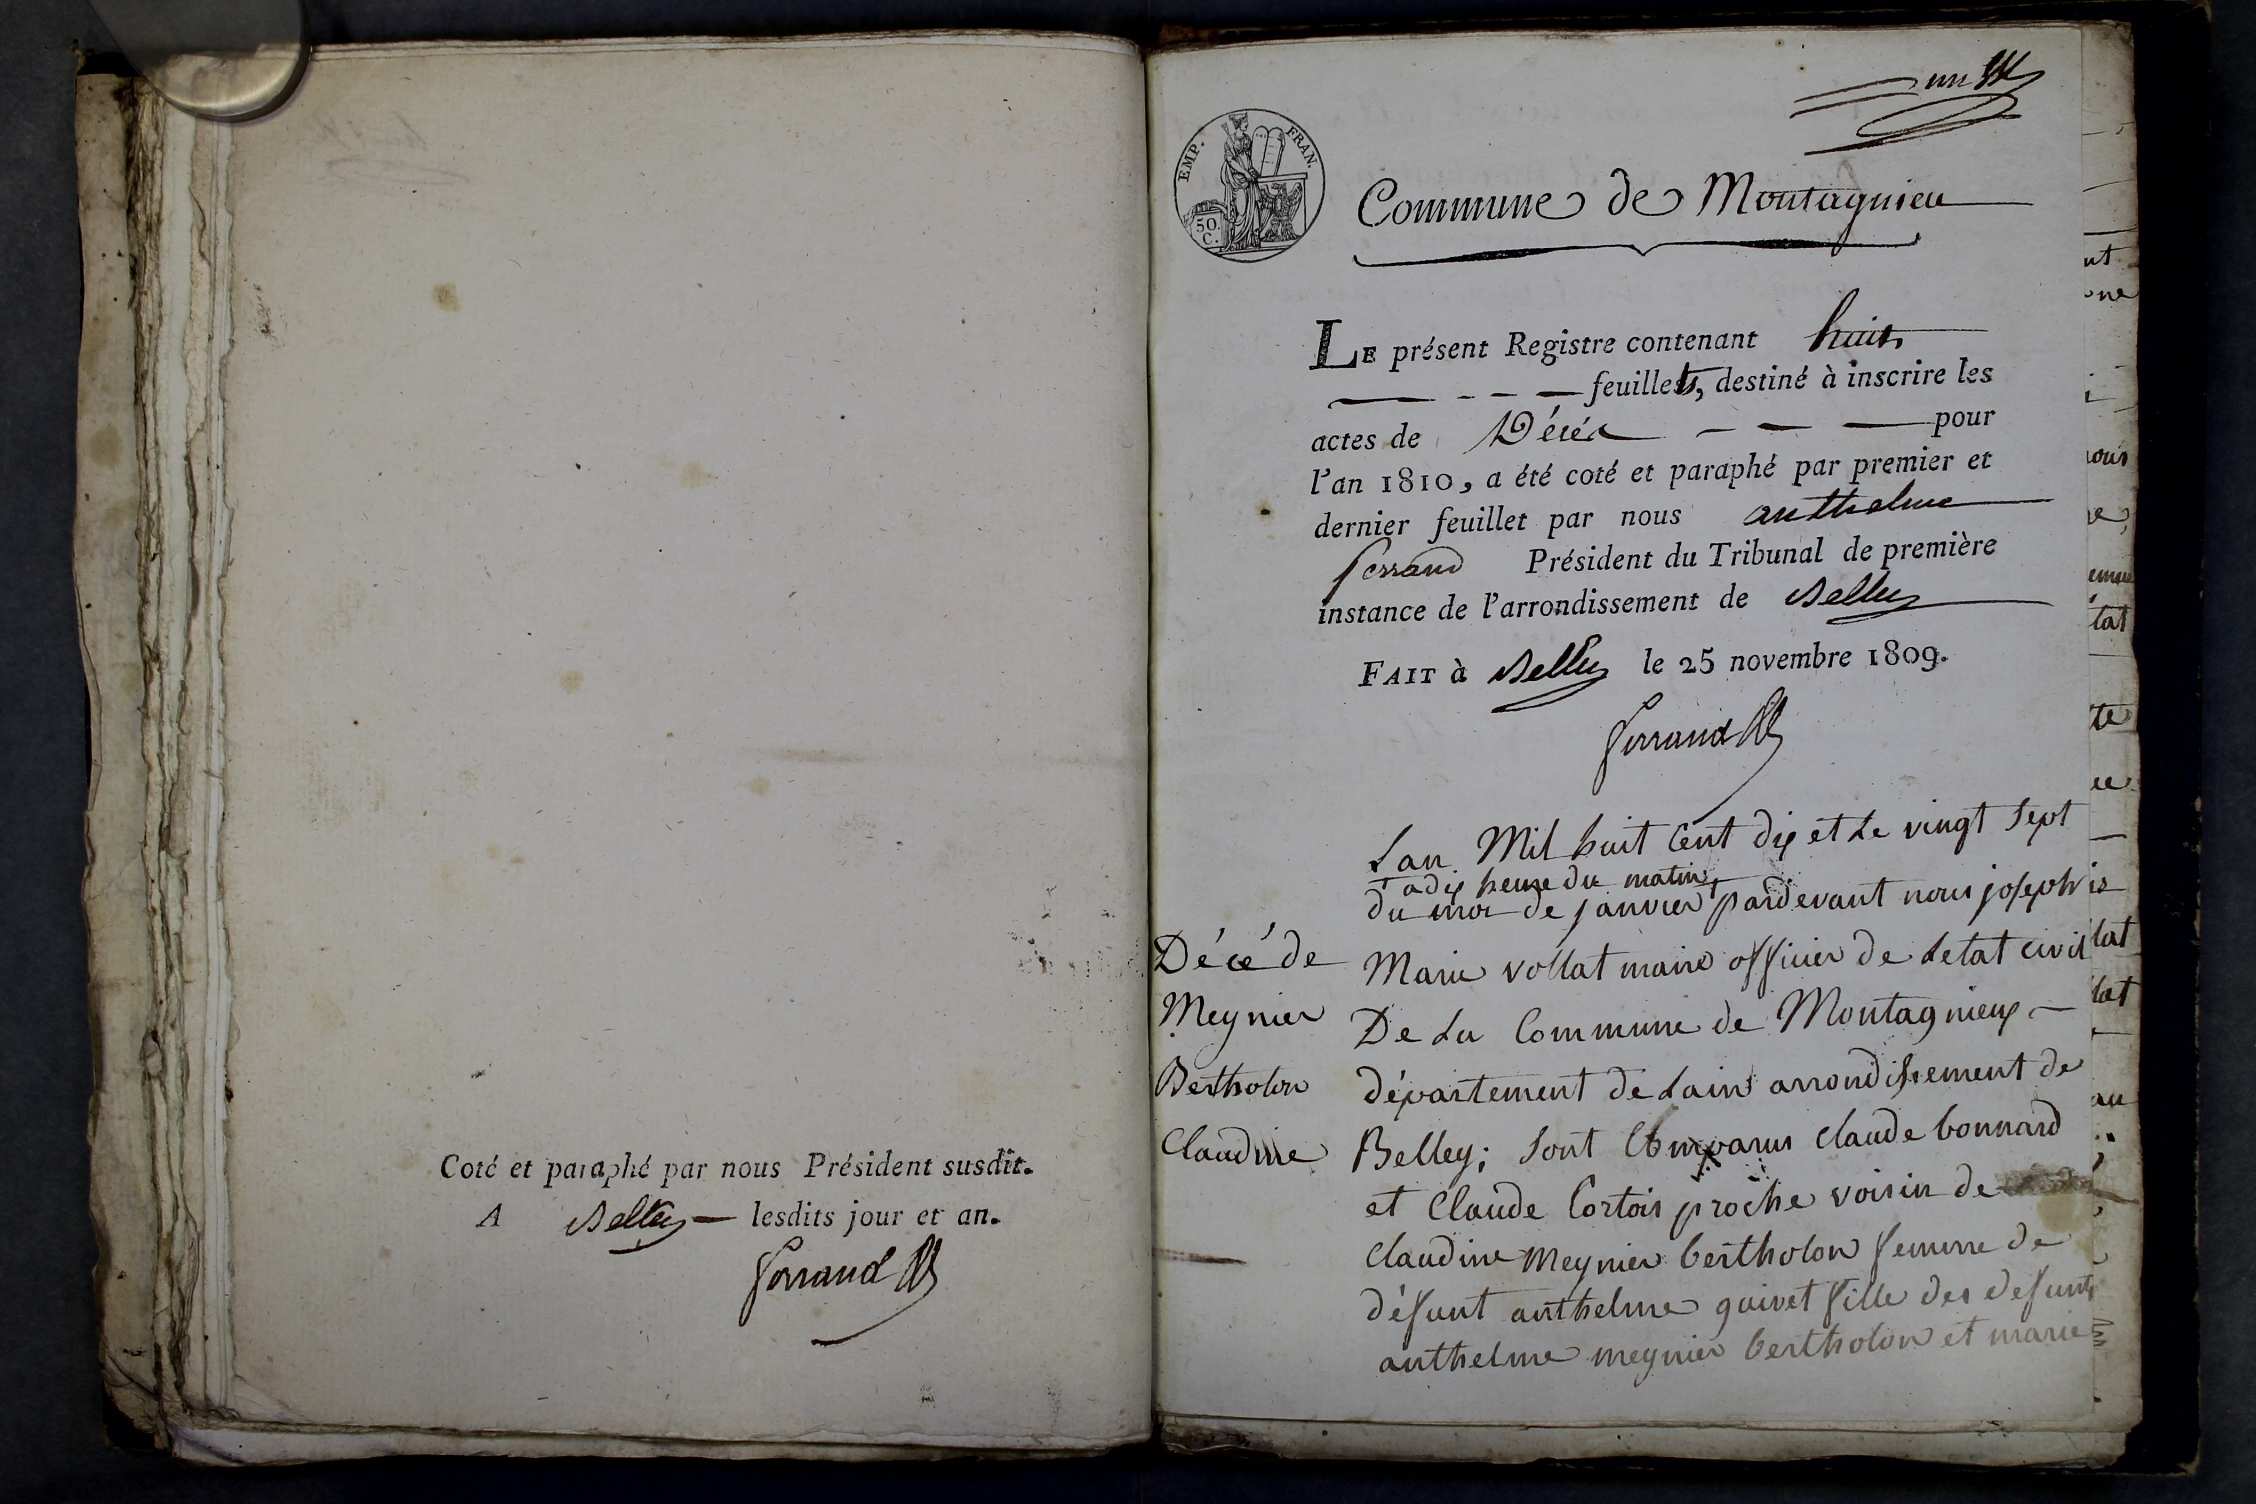 Coté et paraphé par nous Président susdit.
A Belley — lesdits jour et an.
Ferrand
un
EMP. FRAN.
50. C.
Commune de Montagnieu
LE présent Registre contenant huit
feuillets, destiné à inscrire les
actes de Décés — — — pour
l'an 1810, a été coté et paraphé par premier et
dernier feuillet par nous anthelme
ferrand Président du Tribunal de première
instance de l'arrondissement de Belley
FAIT à Belley le 25 novembre 1809.
Ferrand
Lan Mil huit Cent dix et Le vingt Sept
a dix heure du matin
du moi de janvier pardevant nous joseph
Marie vollat maire officier de Letat civil
De La Commune de Montagnieux —
département de Lain arrondissement de
Belley; Sont Comparus Claude bonnard
et Claude Cortois proche voisin de
Claudine Meynier bertholon femme de
défunt anthelme guivet fille des defunts
anthelme meynier bertholon et marie
Décé de
Meynier
Bertholon
Claudine